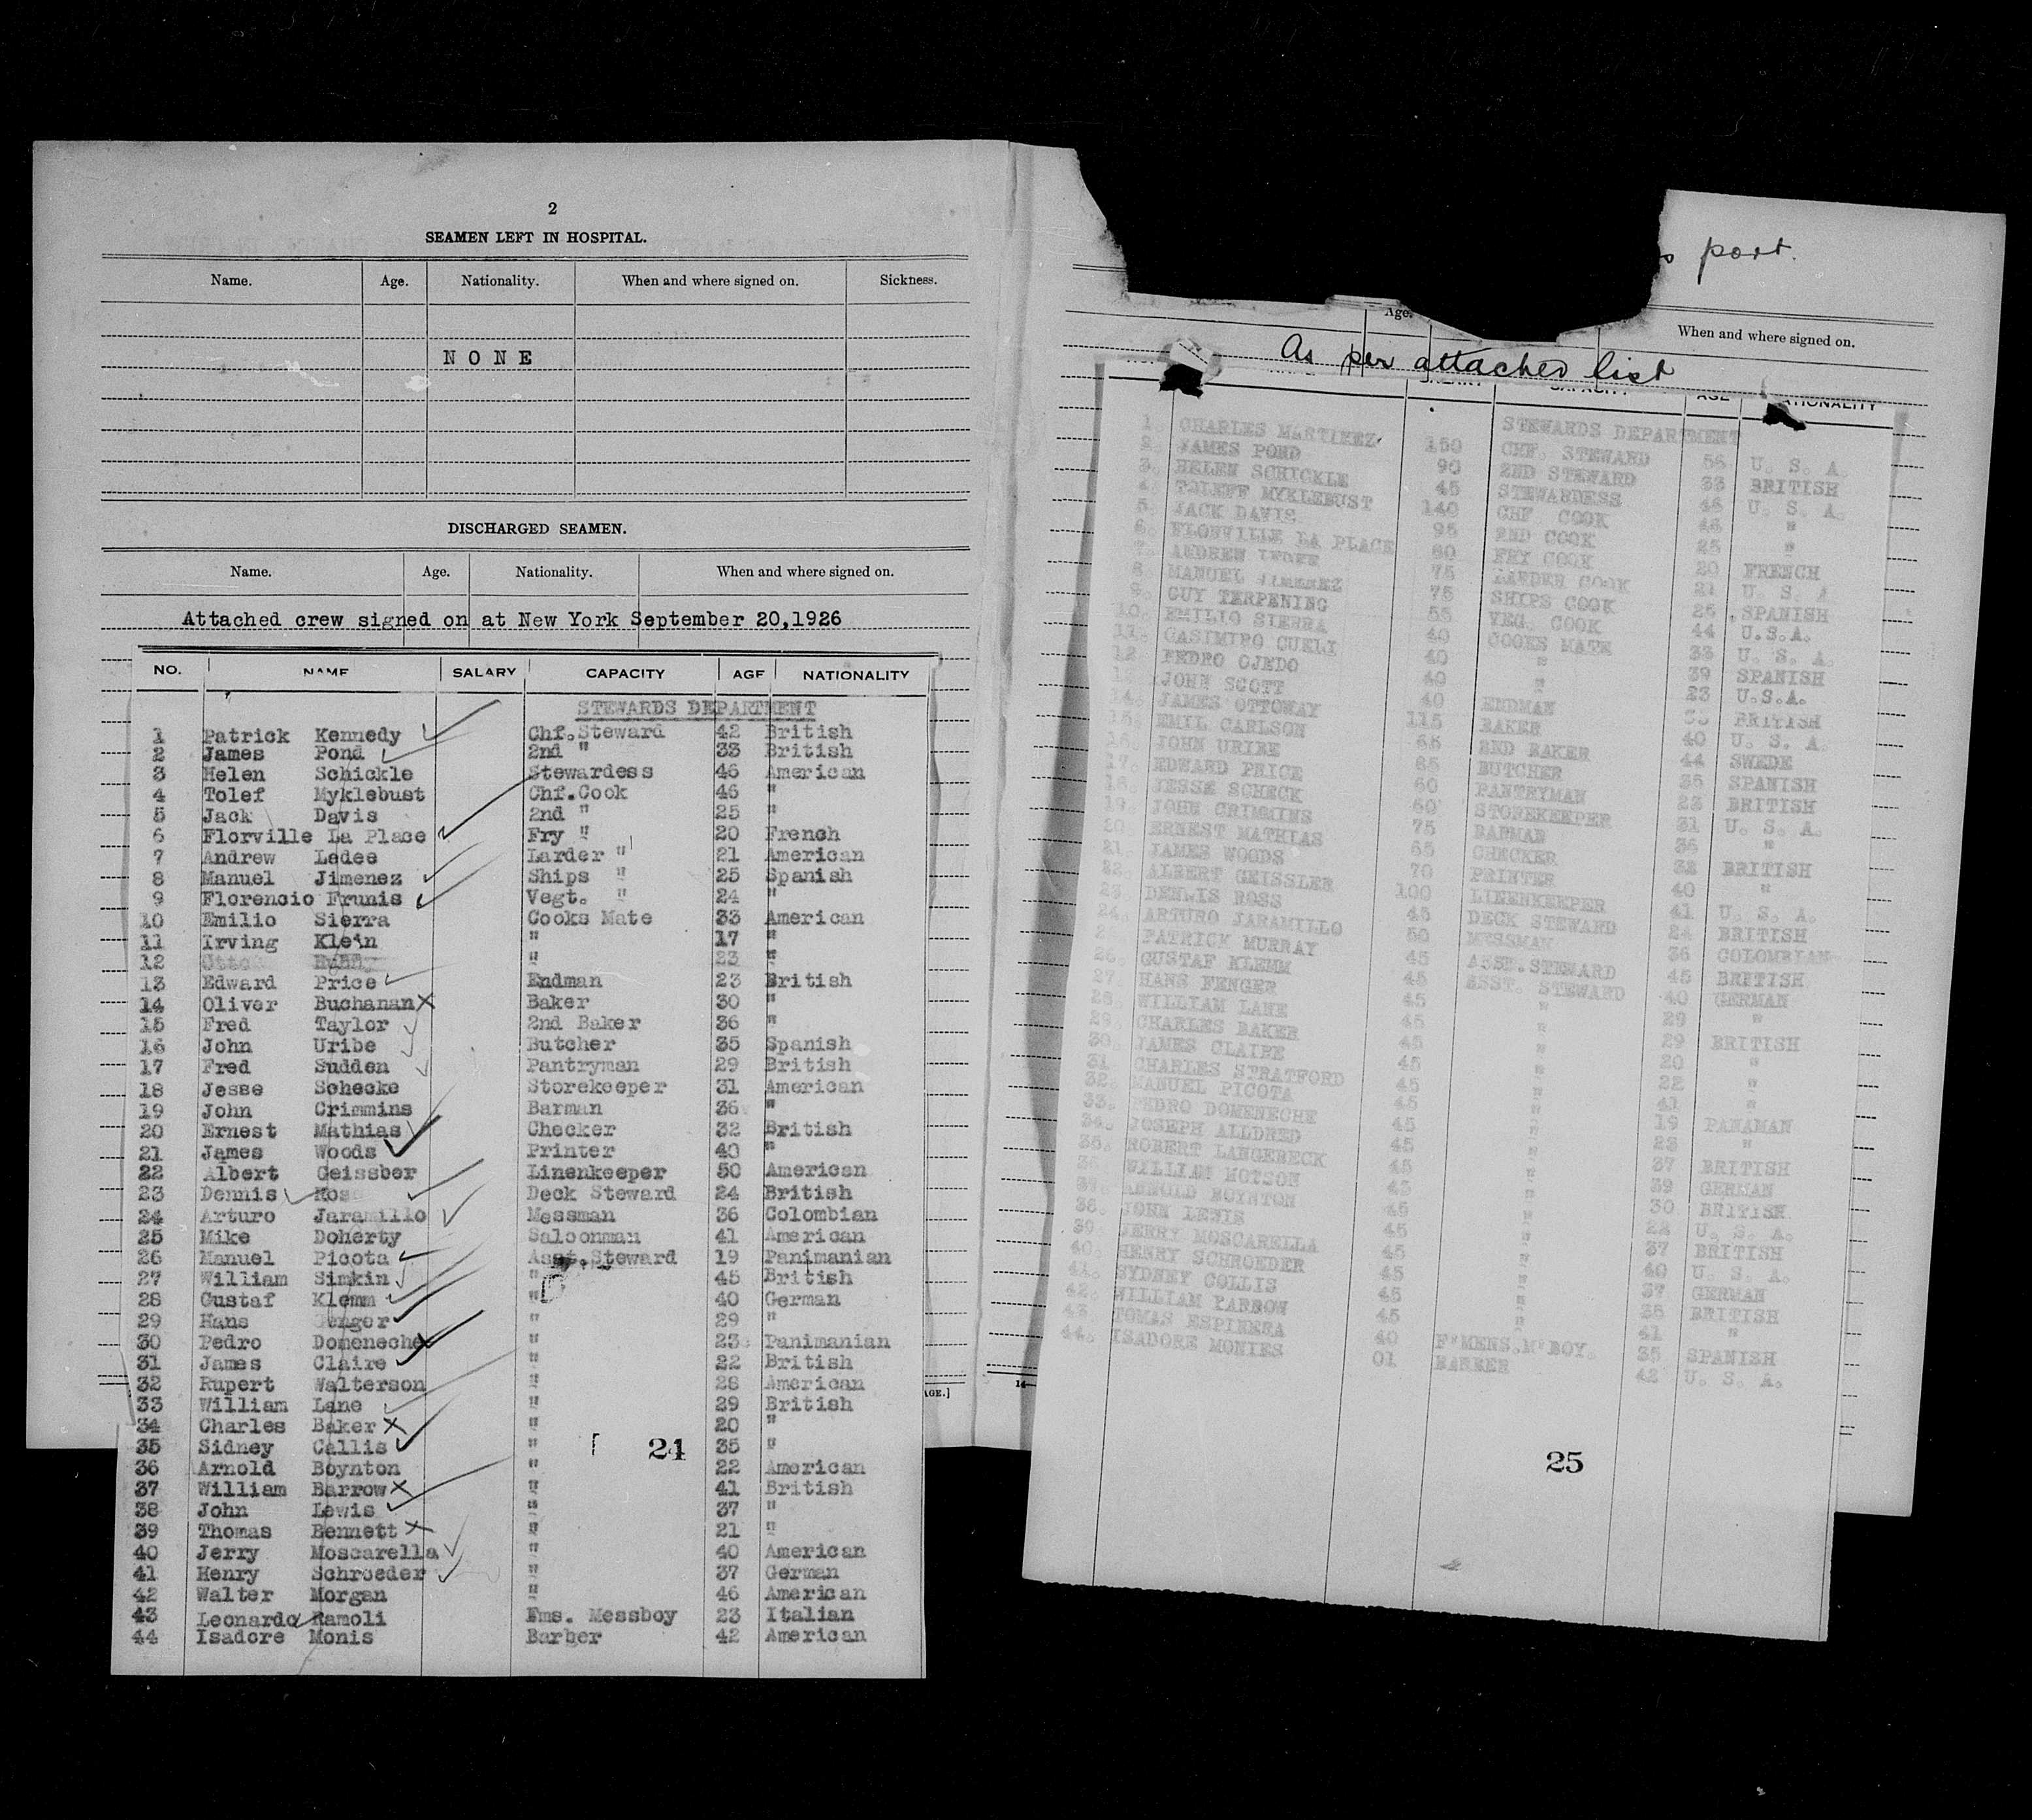 2
SEAMEN LEFT IN HOSPITAL.
Name. Age. Nationality. When and where signed on. Sickness.
NONE
DISCHARGED SEAMEN.
Name. Age. Nationality. When and where signed on.
Attached crew signed on at New York September 20,1926
NO. NAME SALARY CAPACITY AGE NATIONALITY
STEWARDS DEPARTMENT
1 Patrick Kennedy Chf.Steward 42 British
2 James Pond 2nd " 33 British
3 Helen Schickle Stewardess 46 American
4 Tolef Myklebust Chf.Cook 46 "
5 Jack Davis 2nd " 25 "
6 Florville La Place Fry " 20 French
7 Andrew Ledee Larder " 21 American
8 Manuel Jimenez Ships " 25 Spanish
9 Florencio Frunis Vegt. " 24 "
10 Emilio Sierra Cooks Mate 33 American
11 Irving Klein " 17 "
12 Otto " 23 "
13 Edward Price Endman 23 British
14 Oliver Buchanan Baker 30 "
15 Fred Taylor 2nd Baker 36 "
16 John Uribe Butcher 35 Spanish
17 Fred Sudden Pantryman 29 British
18 Jesse Schecke Storekeeper 31 American
19 John Crimmins Barman 36 "
20 Ernest Mathias Checker 32 British
21 James Woods Printer 40 "
22 Albert Geissber Linenkeeper 50 American
23 Dennis Ros Deck Steward 24 British
24 Arturo Jaramillo Messman 36 Colombian
25 Mike Doherty Saloonman 41 American
26 Manuel Picota Asst.Steward 19 Panimanian
27 William Simkin " 45 British
28 Gustaf Klemm " 40 German
29 Hans Fenger " 29 "
30 Pedro Domeneche " 23 Panimanian
31 James Claire " 22 British
32 Rupert Walterson " 28 American
33 William Lane " 29 British
34 Charles Baker " 20 "
35 Sidney Callis " 35 "
36 Arnold Boynton " 22 American
37 William Barrow " 41 British
38 John Lewis " 37 "
39 Thomas Bennett " 21 "
40 Jerry Moscarella " 40 American
41 Henry Schroeder " 37 German
42 Walter Morgan " 46 American
43 Leonardo Ramoli Fms. Messboy 23 Italian
44 Isadore Monis Barber 42 American
24
AGE.]
port.
Age. When and where signed on.
As per attached list
AGE NATIONALITY
STEWARDS DEPARTMENT
1. CHARLES MARTINEZ 150 CHF. STEWARD 56 U. S. A.
2. JAMES POND 90 2ND STEWARD 33 BRITISH
3. HELEN SCHICKLE 45 STEWARDESS 46 U. S. A.
4. TOLEFF MYKLEBUST 140 CHF COOK 46 "
5. JACK DAVIS 95 2ND COOK 25 "
6. FLORVILLE LA PLACE 80 FRY COOK 20 FRENCH
7. ANDREW LEDEE 75 LARDER COOK 21 U. S. A
8. MANUEL JIMENEZ 75 SHIPS COOK 25 SPANISH
9. GUY TERPENING 55 VEG. COOK 44 U.S.A.
10. EMILIO SIERRA 40 COOKS MATE 33 U. S. A.
11. CASIMIRO CUELI 40 " 39 SPANISH
12 PEDRO OJEDO 40 " 23 U.S.A.
13 JOHN SCOTT 40 ENDMAN BRITISH
14. JAMES OTTOWAY 115 BAKER 40 U. S. A.
15. EMIL CARLSON 85 2ND BAKER 44 SWEDE
16. JOHN URIBE 85 BUTCHER 35 SPANISH
17. EDWARD PRICE 60 PANTRYMAN 23 BRITISH
18. JESSE SCHECK 60 STOREKEEPER 31 U. S. A.
19. JOHN CRIMMINS 75 BARMAN 36 "
20. ERNEST MATHIAS 65 CHECKER 32 BRITISH
21. JAMES WOODS 70 PRINTER 40 "
22. ALBERT GEISSLER 100 LINENKEEPER 41 U. S. A.
23. DENNIS ROSS 45 DECK STEWARD 24 BRITISH
24. ARTURO JARAMILLO 50 MESSMAN 36 COLOMBIAN
25. PATRICK MURRAY 45 ASST.STEWARD 45 BRITISH
26. GUSTAF KLEMM 45 ASST. STEWARD 40 GERMAN
27. HANS FENGER 45 " 29 "
28. WILLIAM LANE 45 " 29 BRITISH
29. CHARLES BAKER 45 " 20 "
30. JAMES CLAIRE 45 " 22 "
31 CHARLES STRATFORD 45 " 41 "
32. MANUEL PICOTA 45 " 19 PANAMAN
33. PEDRO DOMENECHE 45 " 23 "
34. JOSEPH ALLDRED 45 " 37 BRITISH
35. ROBERT LANGEBECK 45 " 39 GERMAN
36 WILLIAM MOTSON 45 " 30 BRITISH
37. ARNOLD BOYNTON 45 " 22 U. S. A.
38. JOHN LEWIS 45 " 37 BRITISH
39. JERRY MOSCARELLA 45 " 40 U. S. A.
40. HENRY SCHROEDER 45 " 37 GERMAN
41. SYDNEY COLLIS 45 " 35 BRITISH
42. WILLIAM YARROW 45 " 41 "
43. TOMAS ESPINERA 40 F'MENS.M'BOY. 35 SPANISH
44. ISADORE MONIES 01 BARBER 42 U. S. A.
14
25